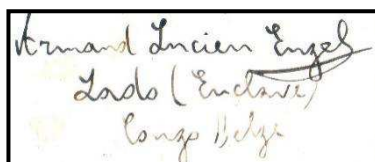 Armand Lucien Engel
Lado (Enclave)
Congo Belge